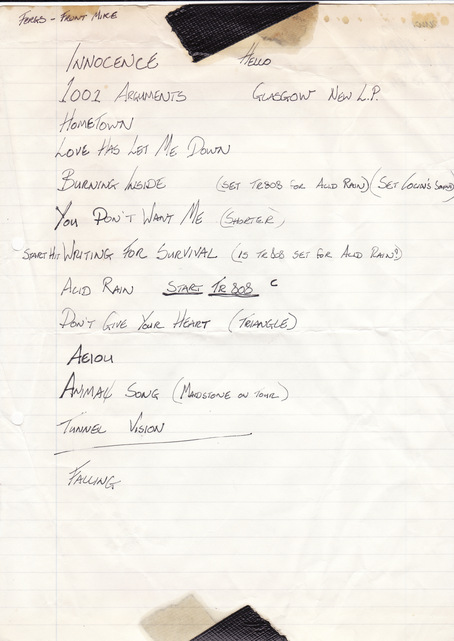 Fergs - Front Mike
Innocence Hello
1001 Arguments Glasgow New L.P.
HomeTown
Love Has Let Me Down
Burning Inside (Set TR808 for Acid Rain) (Set Colin's Sound)
You Don't Want Me (Shorter)
Start Hit Writing For Survival (Is TR808 set for Acid Rain?)
Acid Rain Start TR 808 C
Don't Give Your Heart (Triangle)
Aeiou
Animal Song (Maidstone on Tour)
Tunnel Vision
Falling